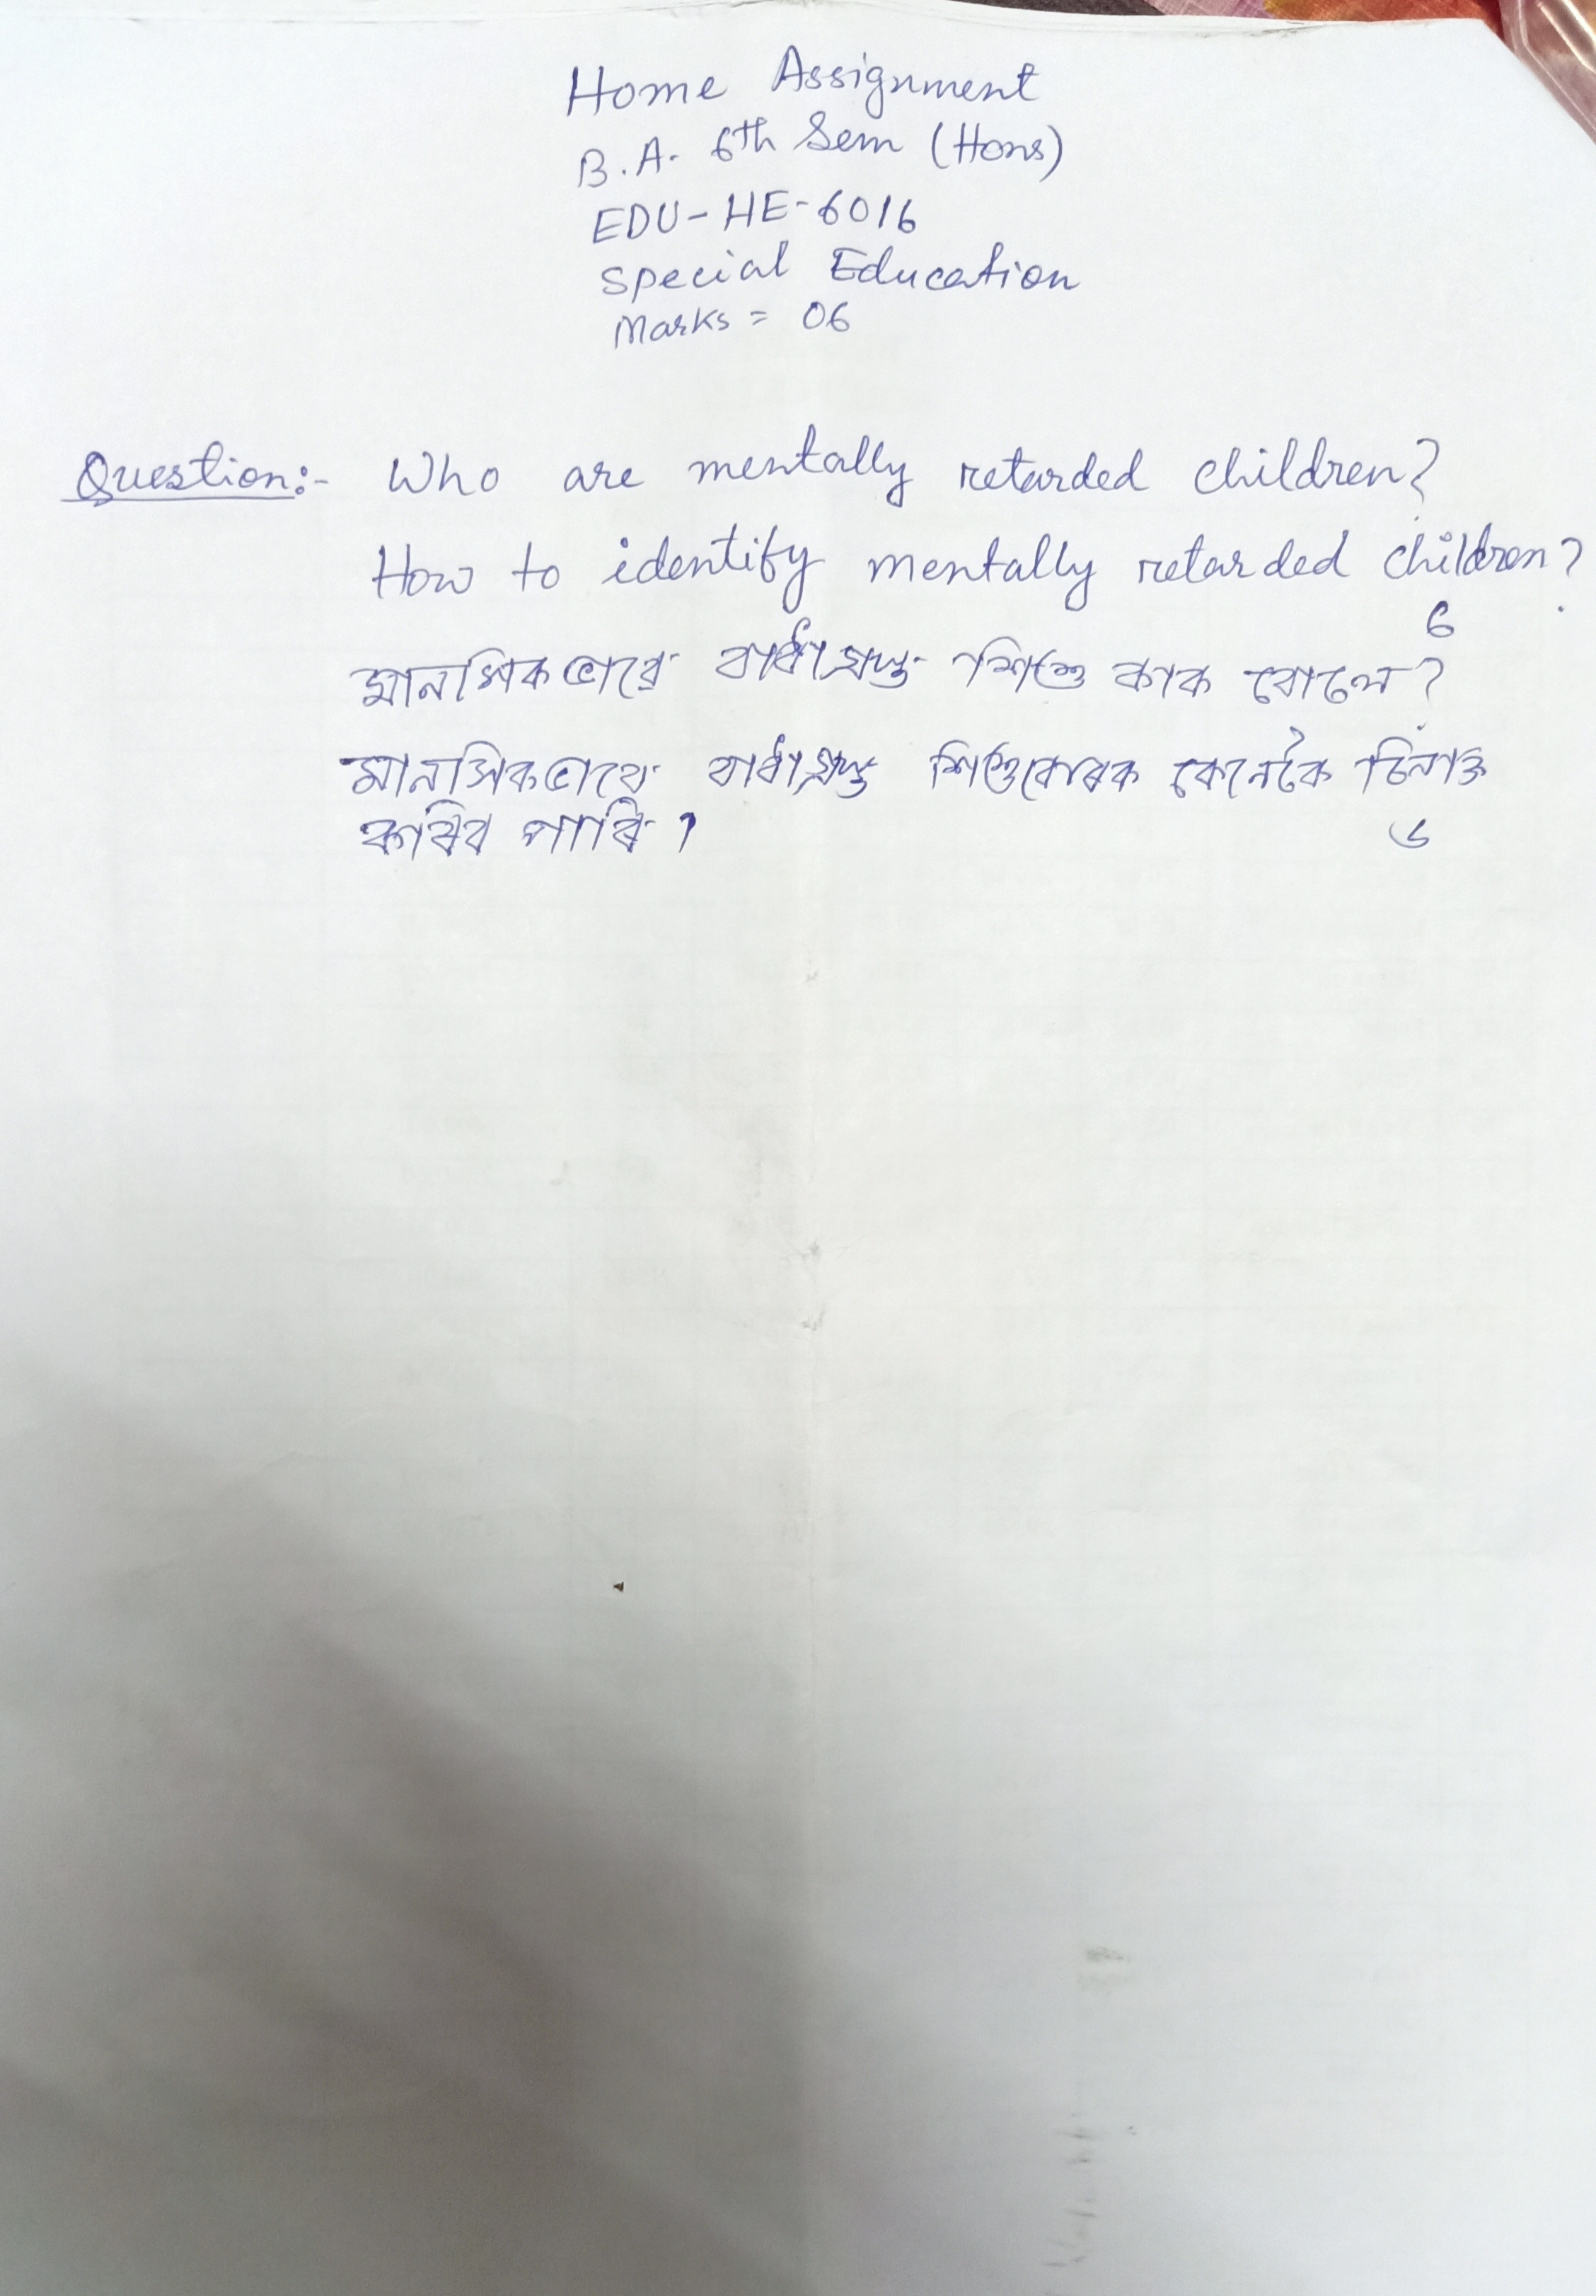 Home Assignment
B.A. 6th Sem (Hons)
EDU-HE-6016
Special Education
Marks = 06
Question:- Who are mentally retarded children?
How to identify mentally retarded children?
6
মানসিকভাৱে বাধাগ্ৰস্ত শিশু কাক বোলে?
মানসিকভাৱে বাধাগ্ৰস্ত শিশুবোৰক কেনেকৈ চিনাক্ত
কৰিব পাৰি?
৬